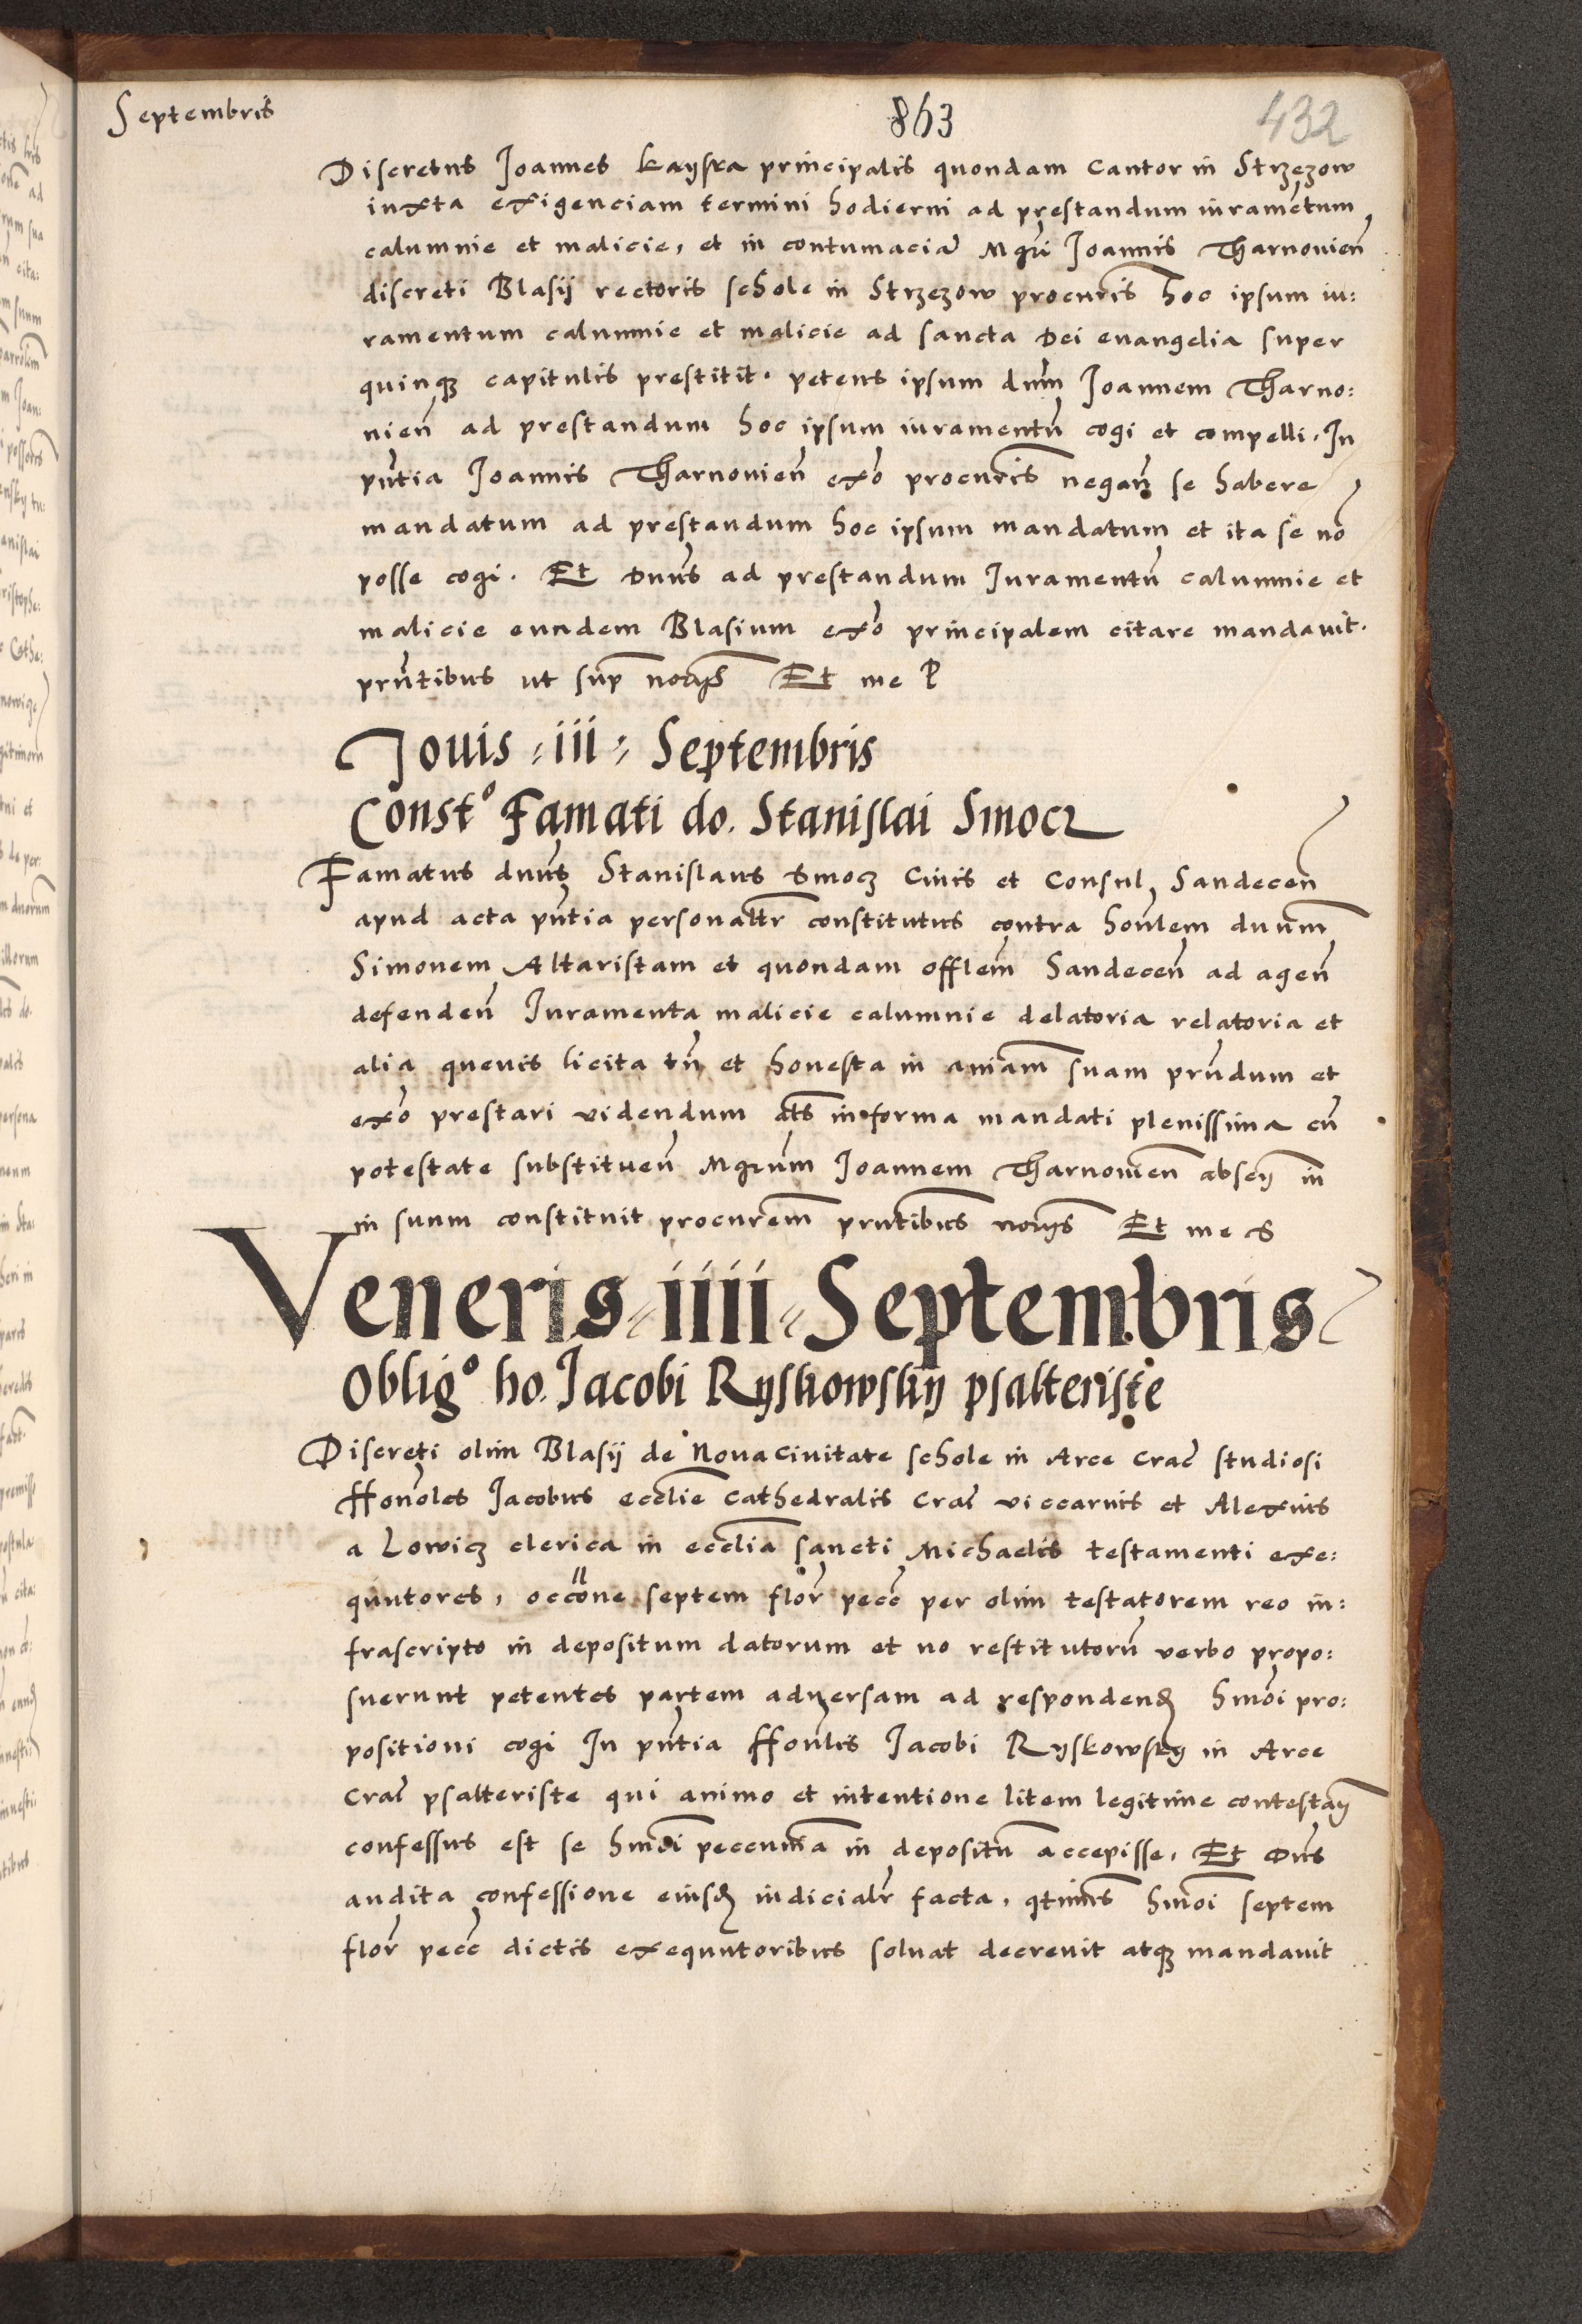 Septembris
863
432
Discretus Joannes Kayska principalis quondam Cantor in Strzezow
iuxta exigenciam termini hodierni ad prestandum iuramētum
calumnie et malicie, et in contumaciā Mgri Joannis Tharnovien̄
discreti Blasij rectoris schole in Strzezow procuris̄ hoc ipsum iu:
ramentum calumnie et malicie ad sancta Dei evangelia super
quinqȝ capitulis prestitit. petens ipsum dnm̄ Joannem Tharno:
nien̄ ad prestandum hoc ipsum iuramentū cogi et compelli. In
pn̄tia Joannis Tharnovien̄ exo procuris̄ negan̄ se habere
mandatum ad prestandum hoc ipsum mandatum et ita se no
posse cogi. Et Dnus̄ ad prestandum Juramentū calumnie et
malicie eundem Blasium exo principalem citare mandavit.
prn̄tibus ut sup̄ norijs̄ Et me P
Jovis · iii · Septembris
Const° Famati do. Stanislai Smocz
Famatus dnus̄ Stanislaus Smocz Civis et Consul Sandecen̄
apud acta pn̄tia personaltr̄ constitutus contra honlem̄ dnum̄
Simonem Altaristam et quondam offlem̄ Sandecen̄ ad agen̄
defenden̄ Juramenta malicie calumnie delatoria relatoria et
alia quevis licita tn̄ et honesta in aniam̄ suam prn̄dum et
exo prestari videndum als̄ in forma mandati plenissima cū
potestate substituen̄ Mgrum̄ Joannem Tharnovien̄ absen̄ in
in suum constituit procurem̄ prn̄tibus norijs̄ Et me S
Veneris · iiii · Septembris
Oblig° ho. Jacobi Ryskowskij psalteriste
Discreti olim Blasij de Nova Civitate schole in Arce Crac̄ studiosi
Honoles̄ Jacobus ecclie̅ Cathedralis Crac̄ viccarius et Alexius
a Lowicz clerica in ecclia̅ sancti Michaelis testamenti exe:
quutores, occone̅ septem flor̄ pecc̄ per olim testatorem reo in:
frascripto in depositum datorum et no restitutorū verbo propo:
suerunt petentes partem adversam ad responden̄d hmoi̅ pro:
positioni cogi In pn̄tia Honlis̄ Jacobi Ryskowsky in Arce
Crac̄ psalteriste qui animo et intentione litem legitime contestan̄
confessus est se hmoi̅ peccunia̅ in depositū accepisse. Et Dns̄
audita confessione eiusd̄ iudicialr̄ facta, qtinus̄ hmoi̅ septem
flor̄ pecc̄ dictis exequutoribus solvat decrevit atqȝ mandavit